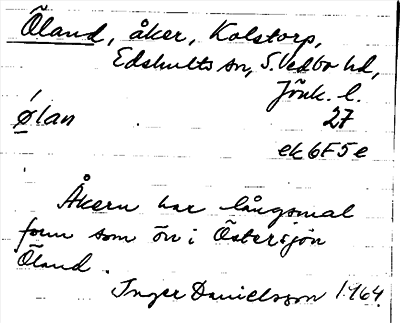 Öland, åker, Kolstorp,
Edshults sn, S. Vedbo hd,
Jönk. l.
ǿlan 27
ek 6F5e
Åkern har långsmal
form som ön i Östersjön
Öland.
Inger Danielsson 1964.